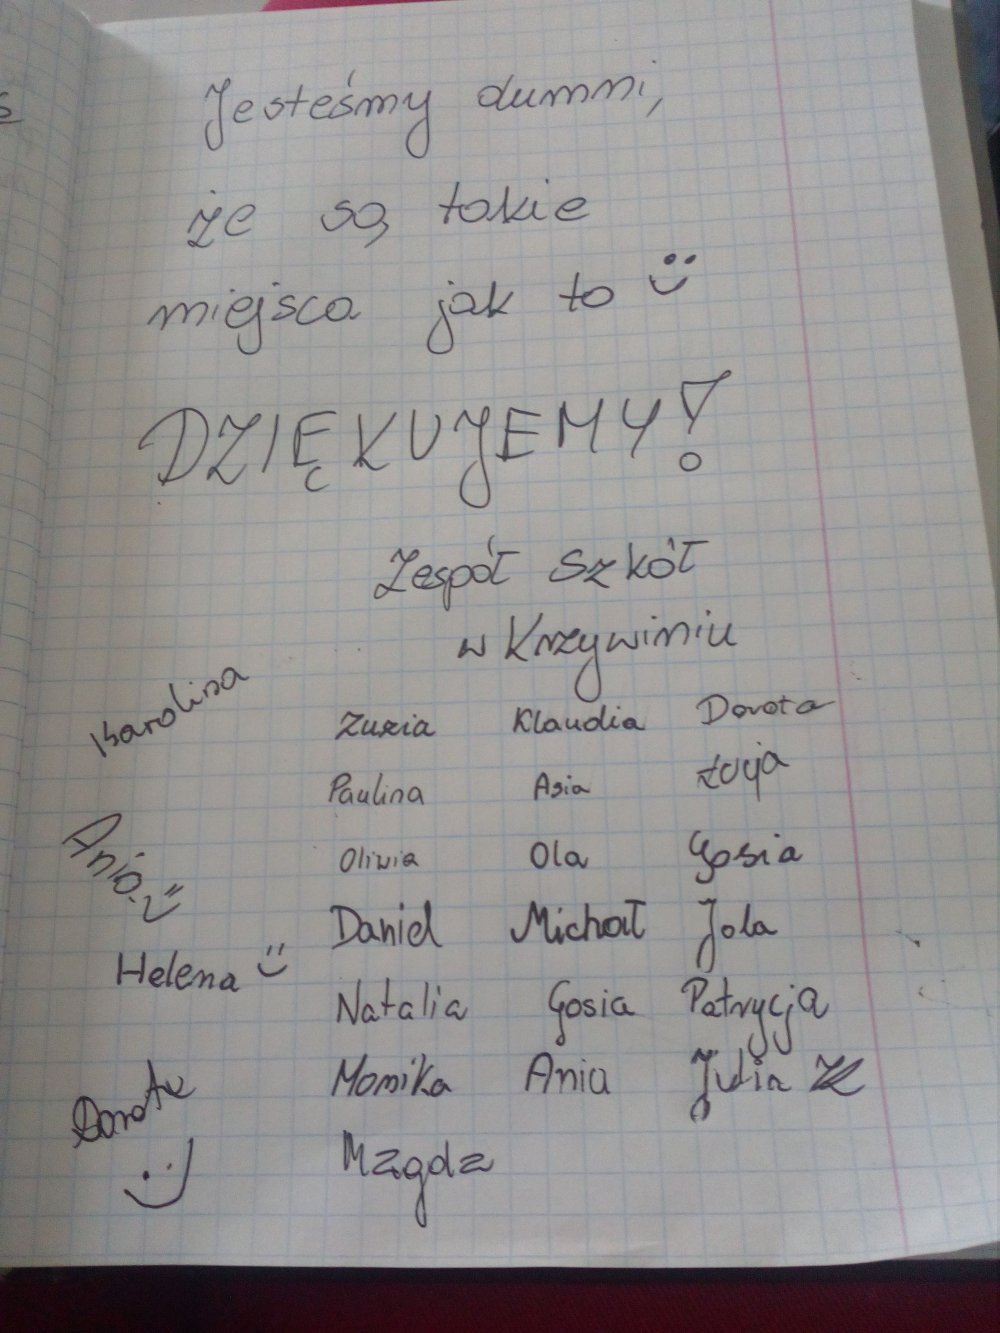 Jesteśmy dumni,
że są takie
miejsca jak to :)
DZIĘKUJEMY!
Zespół Szkół
w Krzywiniu
Karolina
Zuzia Klaudia Dorota
Paulina Asia Łucja
Oliwia Ola Gosia
Ania :)
Daniel Michał Jola
Helena :)
Natalia Gosia Patrycja
Monika Ania Julia
Dorota :)
Magda